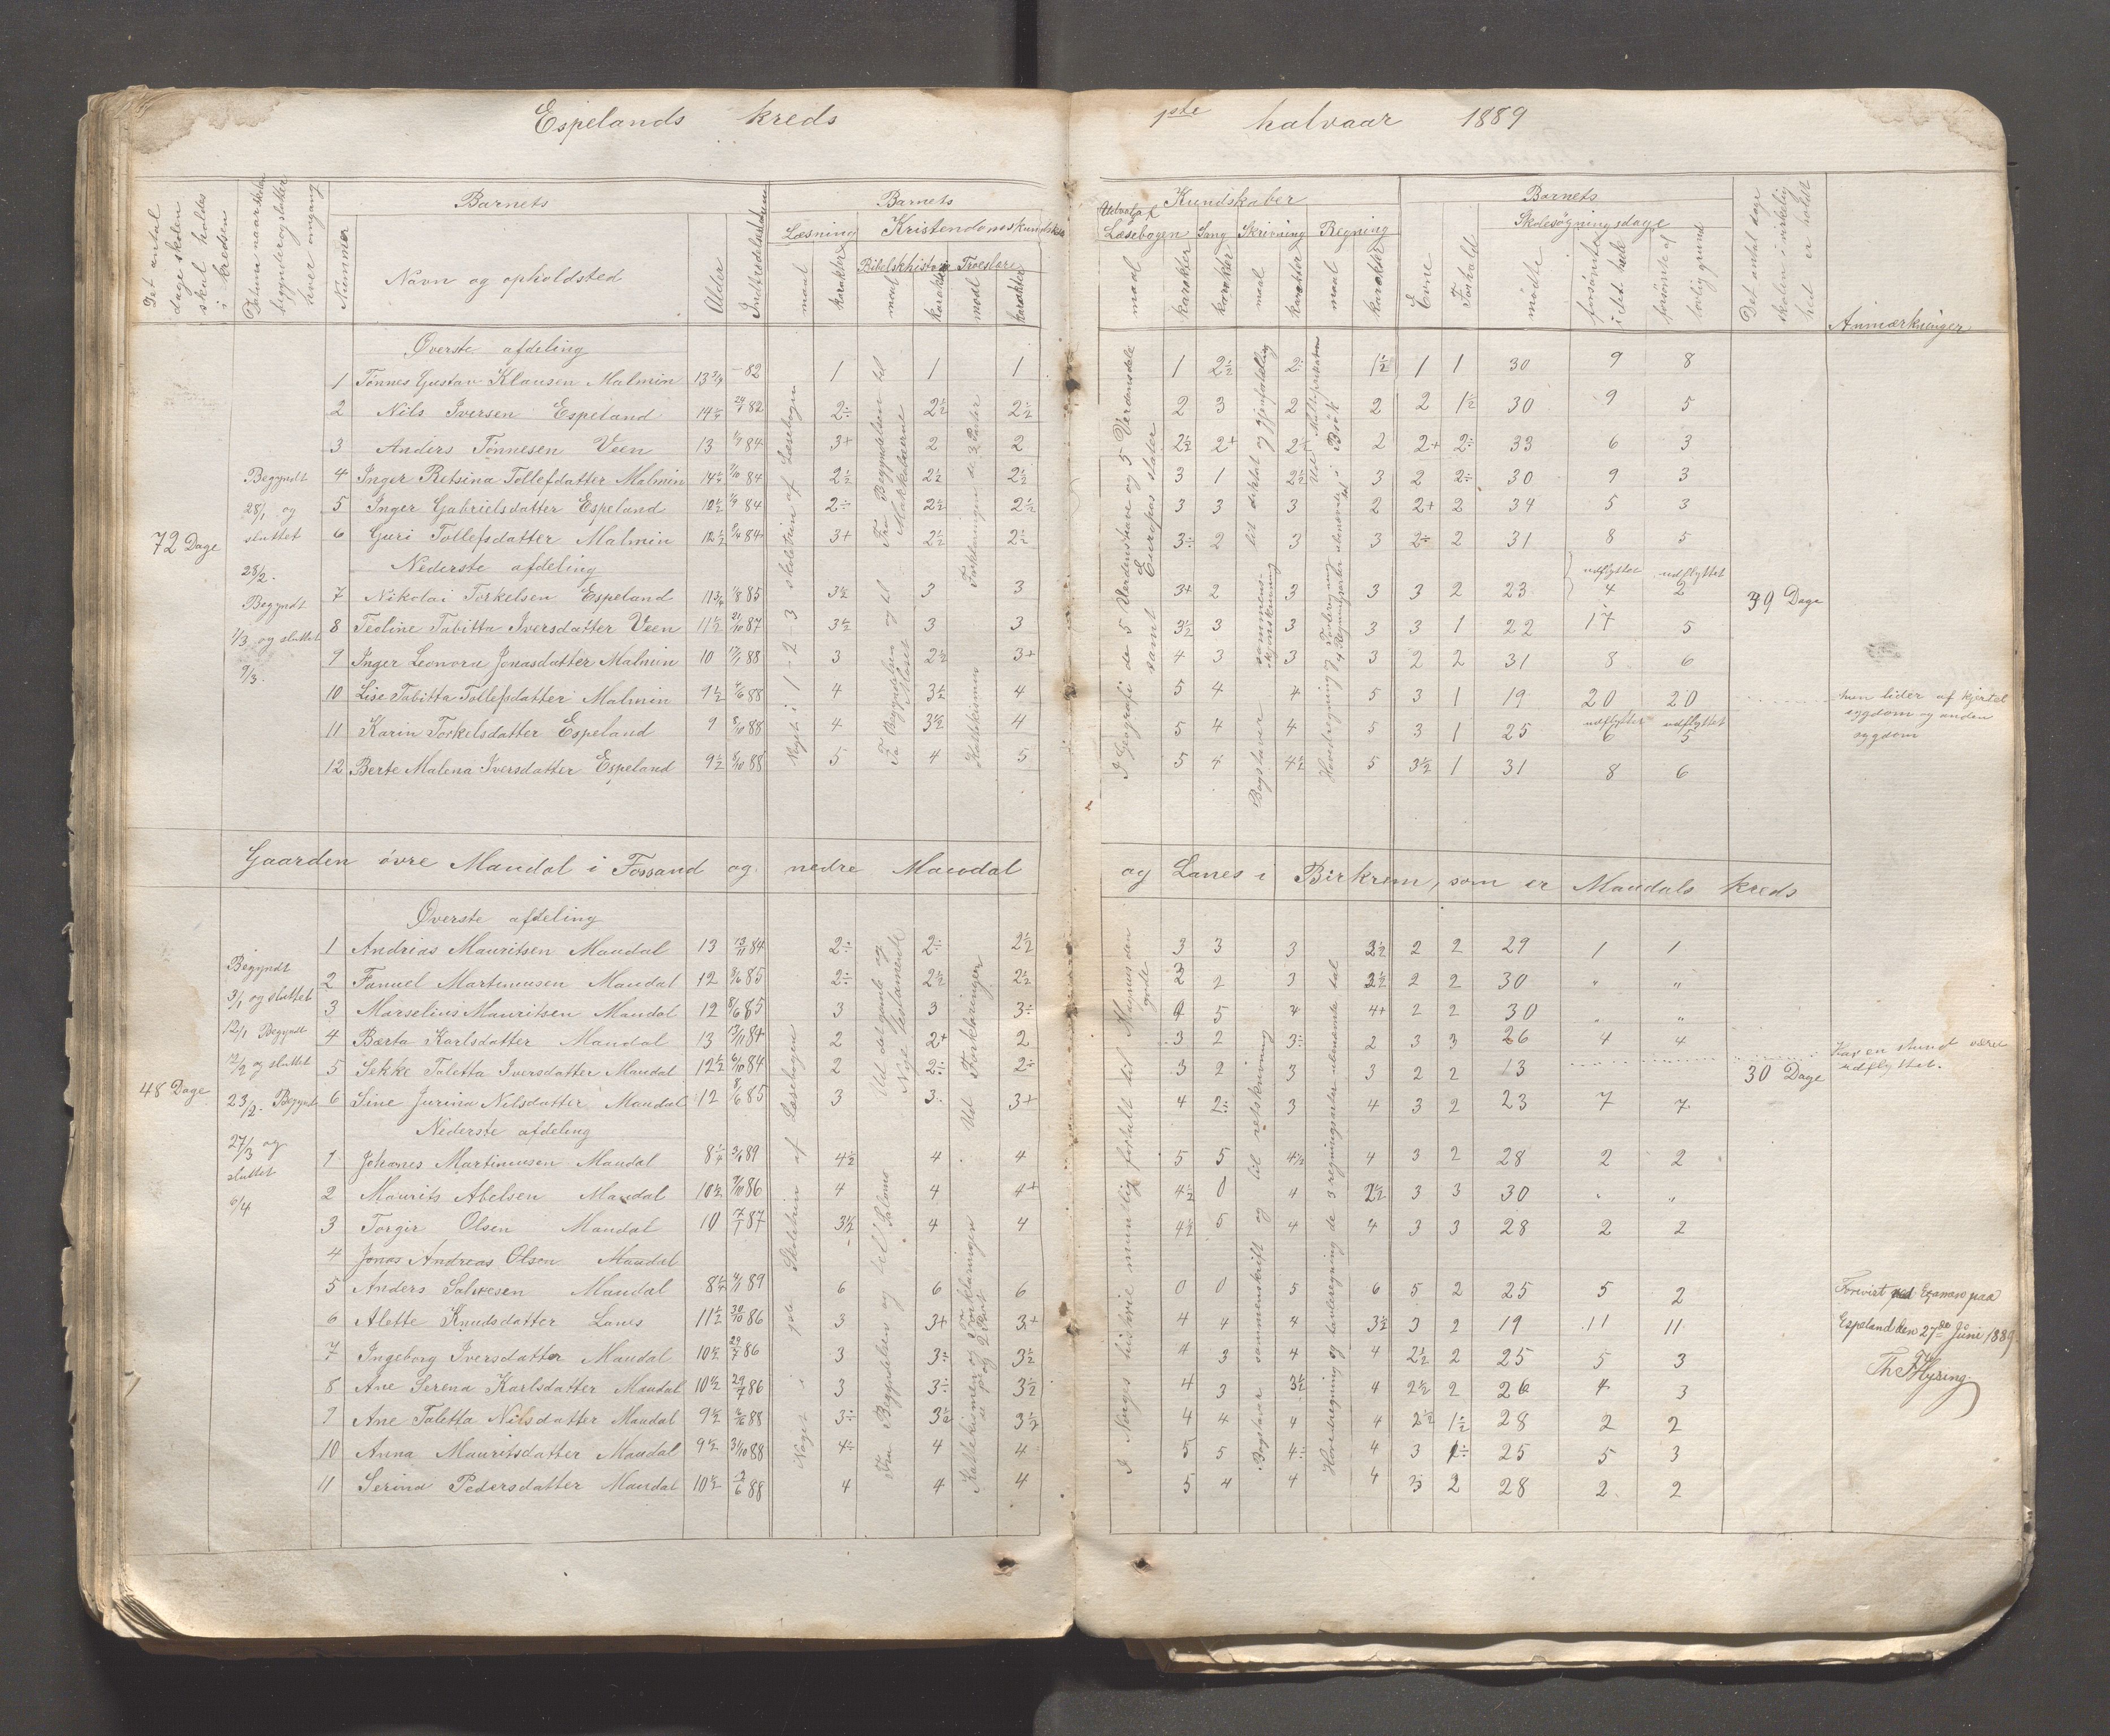 Espelands kreds 1ste halvaar 1889
Det antal dage skolen skal holdes i kredsen
Datum naar skolen begynder og slutter hver omgang
Nummer
Barnets
Navn og opholdsted
Alder
Indtrædelsesdatum
Barnets
Læsning
maal
karakter
Kristendomskundskab
Bibelskhistorie
maal
karakter
Troeslære
maal
karakter
Kundskaber
Udvalg af Læsebogen
maal
karakter
Sang
karakter
Skrivning
maal
karakter
Regning
maal
karakter
Barnets
Evne
Forhold
Skolesøgningsdage
mødte
forsømte i det hele
forsømte af lovlig grund
Det antal dage skolen i virkelighed er holdt
Anmærkninger
Øverste afdeling
1 Tønnes Gustav Klausen Malmin 13 3/4 – 82 1 1 1 1 2÷ 2÷ 1½ 1 1 30 9 8
2 Nils Iversen Espeland 14¼ 82 2÷ 2½ 2½ 2 3 2 2 2 1½ 30 9 5
3 Anders Tønnesen Veen 13 84 3+ 2 2 2½ 2+ 2½ 2 2+ 2÷ 33 6 3
4 Inger Retsina Tollefdatter Malmin 14¼ 84 2½ 2½ 2½ 3 1 2½ 3 2 2÷ 30 9 3
5 Inger Gabrielsdatter Espeland 12½ 84 2÷ 2½ 2½ 3 3 3 2 2+ 2 34 5 3
6 Guri Tollefsdatter Malmin 12½ 84 3+ 2½ 2½ 3÷ 2 3 3 2÷ 2 31 8 5
Nederste afdeling
7 Nikolai Torkelsen Espeland 11 3/4 85 3½ 3 3 3+ 2 3 3 3 2 23 udflyttet 4 udflyttet 2
8 Teoline Tabitta Iversdatter Veen 11½ 21/10 87 3½ 3 3 3½ 3 3 3 3 1 22 17 5
9 Inger Leonora Jonasdatter Malmin 10 88 3 2½ 3+ 4 3 3 3 2 2 31 8 6
10 Lise Tabitta Tollefsdatter Malmin 9½ 88 4 3½ 4 5 4 4 5 3 1 19 20 20
11 Karin Torkelsdatter Espeland 9 8/10 88 4 3½ 4 5 4 4 5 3 1 25 udflyttet 6 udflyttet 5
12 Berte Malena Iversdatter Espeland 9½ 8/10 88 5 4 5 5 4 4½ 5 3½ 1 31 8 6
72 Dage
Begyndt
28/1 og
sluttet
28/2.
Begyndt
1/3 og sluttet
9/3.
Noget i 1-2-3 skoletrin af Læsebogen
Fra Begyndelsen til Makkabæerne
Fra Begyndelsen og til Moses
Forklaringen de 2 Parter
Katekismen
I Geografi de 5 Verdensdele og 5 Verdenshave samt Europas stater
til diktat og gjenfortælling
Bogstaver sammenskjønskrivning
Hovedregning og
39 Dage
hun lider af kjertel
sygdom og anden
sygdom
Gaarden øvre Maudal i Fossand og nedre Maudal og Lanes i Birkrem, som er Maudals kreds
Øverste afdeling
1 Andrias Mauritsen Maudal 13 13/11 84 2÷ 2÷ 2½ 3 3 3 2½ 2 2 29 1 1
2 Fanuel Martinusen Maudal 12 8/6 85 2÷ 2½ 2½ 3 2 3 2½ 2 2 30 " "
3 Marselius Mauritsen Maudal 12 8/6 85 3 3 3÷ 4 5 4 4+ 2 2 30 " "
4 Bærta Karlsdatter Maudal 13 13/11 84 2 2+ 2 3 2 3÷ 2 3 3 26 4 4
5 Sekke Taletta Iversdatter Maudal 12½ 6/10 84 2 2÷ 2÷ 3 2 3 3 2 2 13
6 Sine Jurina Nilsdatter Maudal 12 8/6 85 3 3 3+ 4 2÷ 3 4 3 2 23 7 7
Nederste afdeling
1 Johanes Martinusen Maudal 8¼ 89 4½ 4 4 5 5 4½ 4 3 2 28 2 2
2 Maurits Abelsen Maudal 10½ 86 4 4 4+ 4½ 0 4 2½ 3 3 30 " "
3 Torgir Olsen Maudal 10 87 3½ 4 4 4½ 5 4 4 3 3 28 2 2
4 Jonas Andreas Olsen Maudal
5 Anders Salvesen Maudal 8¼ 89 6 6 6 0 0 5 6 5 2 25 5 2
6 Alette Knudsdatter Lanes 11½ 30/10 86 3 3+ 3+ 4 4 4 3½ 3 2 19 11 11
7 Ingeborg Iversdatter Maudal 10½ 29/7 86 3 3÷ 3½ 4 3 4 4 2½ 2 25 5 3
8 Ane Serena Karlsdatter Maudal 10½ 29/7 86 3 3÷ 3½ 4 3 3½ 4 2½ 2 26 4 3
9 Ane Taletta Nilsdatter Maudal 9½ 88 3÷ 3½ 3½ 4 4 4 4 2½ 1½ 28 2 2
10 Anna Mauritsdatter Maudal 9½ 31/10 88 4÷ 4 4 5 5 4÷ 4 3 1÷ 25 5 3
11 Serina Pedersdatter Maudal 10½ 2/6 88 4 4 4 5 4 4 4 3 2 28 2 2
48 Dage
Begyndt
3/1 og sluttet
12/1 Begyndt
12/2 og sluttet
23/2. Begyndt
27/3 og
sluttet
6/4
Noget i Skoletrin af Læsebogen
Ud det gamle og Nye testamente
Fra Begyndelsen og til Salomo
Ud Forklaringen
Katekismen og Forklaringen
I Norges historie mundtlig fortalt til Magnus den gode
Bogstaver sammenskrift og til retskrivning
Hovedregning og tavleregning de 3 regningsarter ubenævnte tal
30 Dage
Har en stund været
udflyttet.
Forevist ved Examen paa
Espeland den 27de Juni 1889.